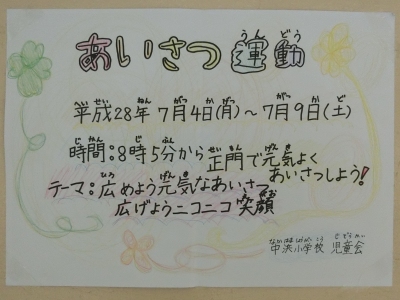 あいさつ運動
平成28年7月4日(月)～7月9日(土)
時間:8時5分から正門で元気よく
あいさつしよう!
テーマ:広めよう元気なあいさつ
広げようニコニコ笑顔
中浜小学校 児童会